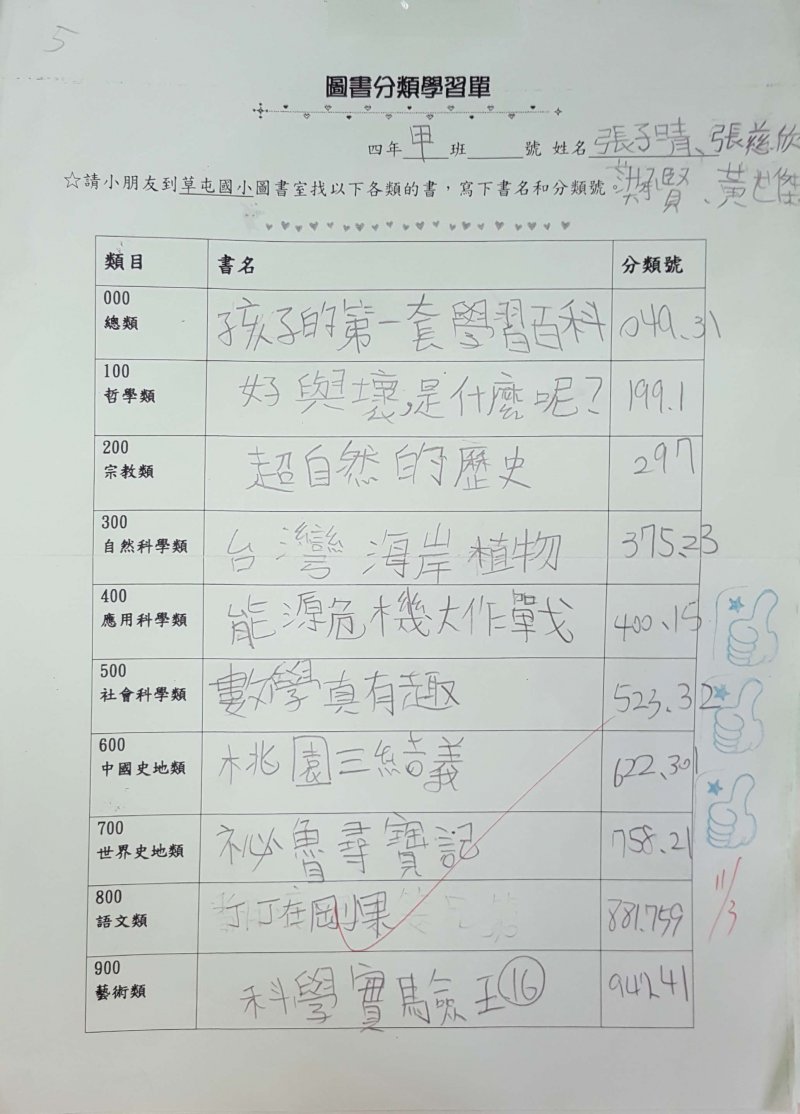 5
圖書分類學習單
四年甲班____號 姓名 張子晴、張慈欣
☆請小朋友到草屯國小圖書室找以下各類的書,寫下書名和分類號。
賢、黃 傑
類目 書名 分類號
000
總類 孩子的第一套學習百科 049.31
100
哲學類 好與壞,是什麼呢? 199.1
200
宗教類 超自然的歷史 297
300
自然科學類 台灣海岸植物 375.23
400
應用科學類 能源危機大作戰 400.15
500
社會科學類 數學真有趣 523.32
600
中國史地類 桃園三結義 622.301
700
世界史地類 祕魯尋寶記 758.21
800
語文類 丁丁在剛果 881.759
900
藝術類 科學實驗王16 947.41
11/3